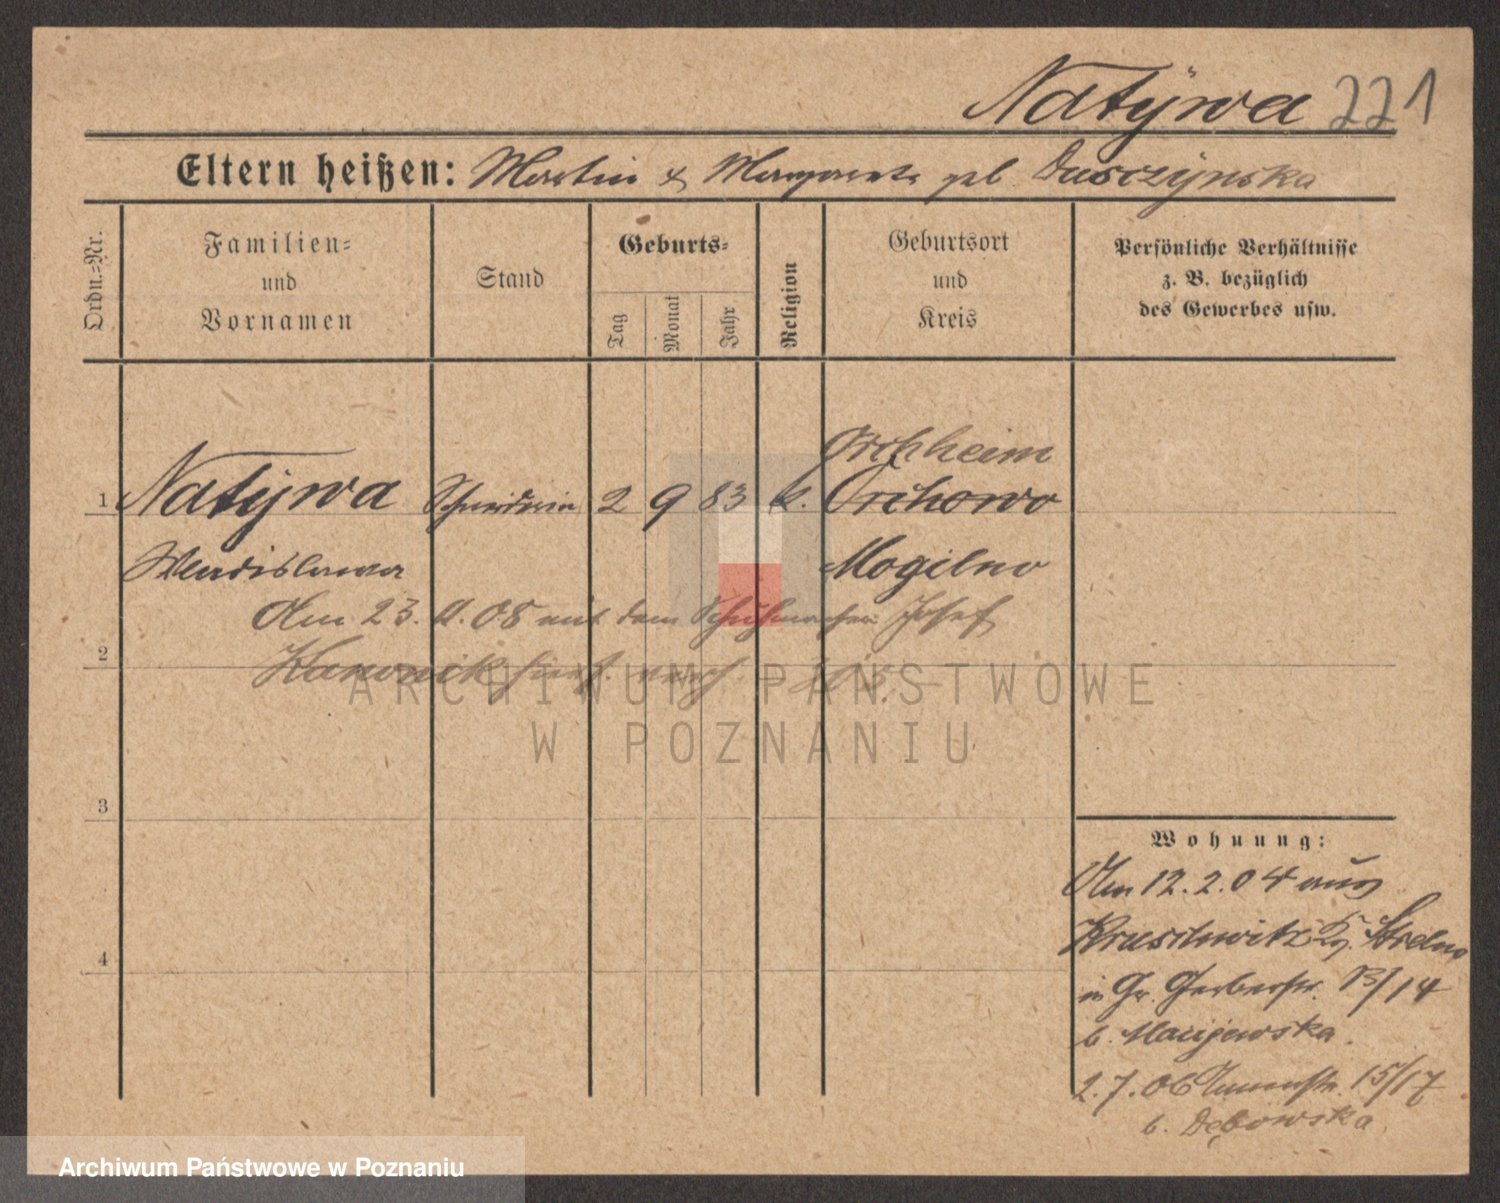 Natÿwa 221
Eltern heißen: Martin & Margareta geb. Duszÿnska
Ordn.=Nr.
Familien=
und
Vornamen
Stand
Geburts=
Tag
Monat
Jahr
Religion
Geburtsort
und
Kreis
Persönliche Verhältnisse
z. B. bezüglich
des Gewerbes usw.
Orchheim
1 Natÿwa Schneiderin 2 9 83 k. Orchowo
Wladislawa Mogilno
Am 23. 08 mit dem Schuhmacher Josef
2
Kanonik
ARCHIWUM PAŃSTWOWE
W POZNANIU
3
Wohnung:
Am 12.2.04 aus
Kruschwitz Kr. Strelno
4
in Gr. Gerberstr. 13/14
b. Macijewska.
2.7.06 15/17
b. Dębowska
Archiwum Państwowe w Poznaniu